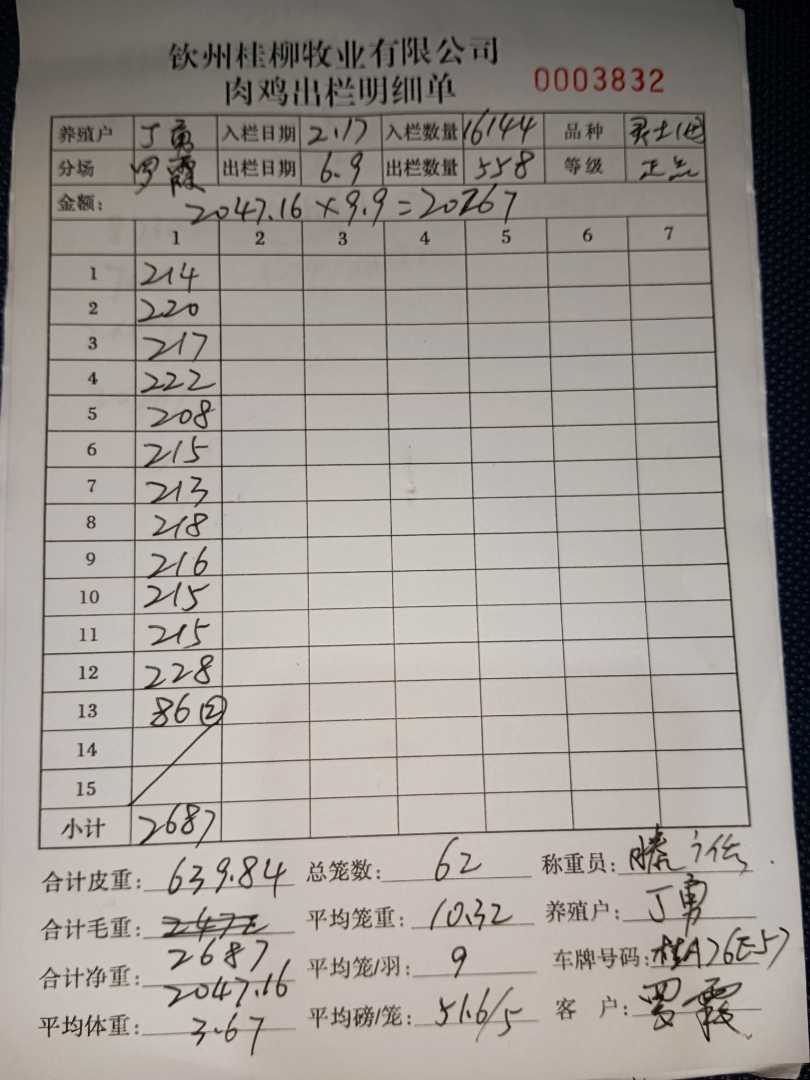 钦州桂柳牧业有限公司
肉鸡出栏明细单 0003832
养殖户 丁勇 入栏日期 2.17 入栏数量 16144 品种
分场 罗霞 出栏日期 6.9 出栏数量 558 等级 正品
金额: 2047.16×9.9=20267
1 2 3 4 5 6 7
1 214
2 220
3 217
4 222
5 208
6 215
7 213
8 218
9 216
10 215
11 215
12 228
13 86②
14
15
小计 2687
合计皮重: 639.84 总笼数: 62 称重员:
合计毛重: 2687 平均笼重: 10.32 养殖户: 丁勇
合计净重: 2047.16 平均笼/羽: 9 车牌号码: 桂A76E57
平均体重: 3.67 平均磅/笼: 51.6/5 客户: 罗霞